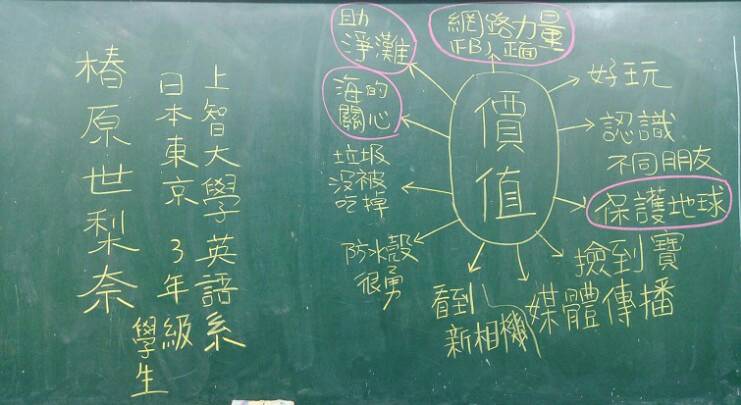 椿原世梨奈
上智大學英語系
日本東京 3年級
學生
助
淨灘
海的
關心
垃圾
沒被
吃掉
防水殼
很勇
網路力量
(FB)正面
價值
好玩
認識
不同朋友
保護地球
撿到寶
媒體傳播
看到
新相機